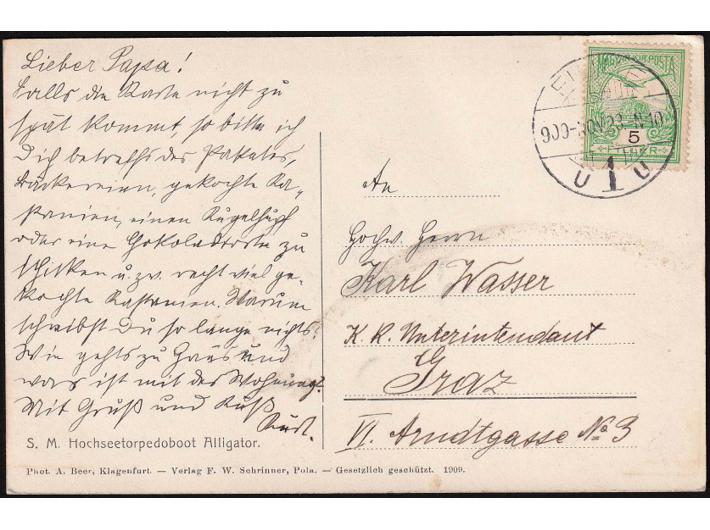 Lieber Papa!
Falls die Karte nicht zu
spät kommt, so bitte ich
Dich betreffs des Paketes,
Bäckereien, gekochte Ka-
stanien, einen Kugelhupf
oder eine Chokoladetorte zu
schicken u. zw. recht viel ge-
kochte Kastanien. Warum
schreibst Du so lange nichts?
Wie gehts zu Haus und
was ist mit der Wohnung?
Mit Gruß und Kuß
Kurt.
S. M. Hochseetorpedoboot Alligator.
Phot. A. Beer, Klagenfurt. — Verlag F. W. Schrinner, Pola. — Gesetzlich geschützt. 1909.
MAGYAR KIR. POSTA
5
FILLER
909-NOV 23-N10
U 1 U
An
Hochw. Herrn
Karl Wasser
K. K. Unterintendant
Graz
VI. Arndtgasse No 3